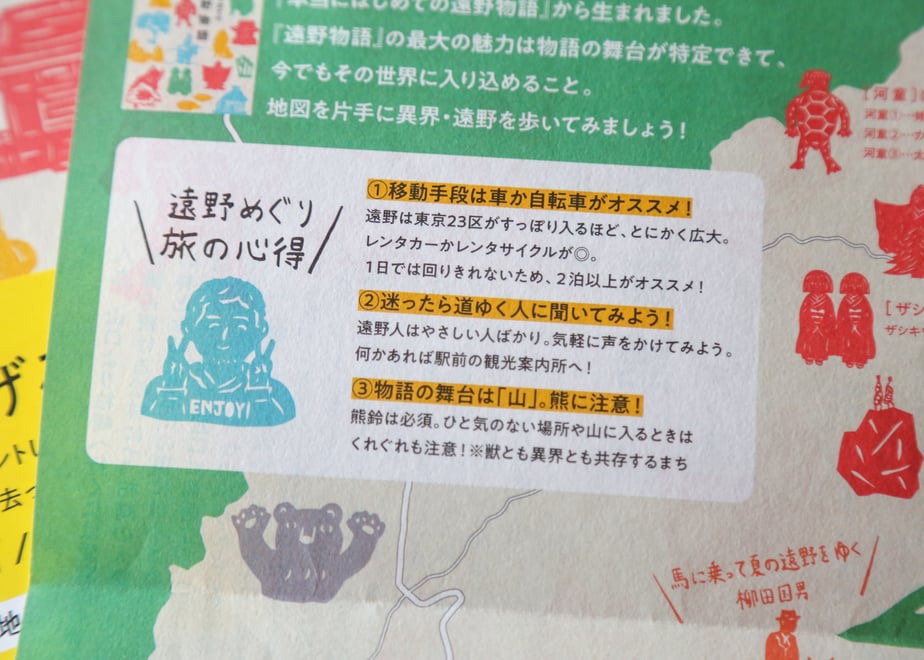 『本当にはじめての遠野物語』から生まれました。
『遠野物語』の最大の魅力は物語の舞台が特定できて、
今でもその世界に入り込めること。
地図を片手に異界・遠野を歩いてみましょう！
遠野めぐり
旅の心得
ENJOY!
①移動手段は車か自転車がオススメ！
遠野は東京23区がすっぽり入るほど、とにかく広大。
レンタカーかレンタサイクルが◎。
1日では回りきれないため、2泊以上がオススメ！
②迷ったら道ゆく人に聞いてみよう！
遠野人はやさしい人ばかり。気軽に声をかけてみよう。
何かあれば駅前の観光案内所へ！
③物語の舞台は「山」。熊に注意！
熊鈴は必須。ひと気のない場所や山に入るときは
くれぐれも注意！※獣とも異界とも共存するまち
［河童］
河童①…
河童②…
河童③…
［ザシ
ザシキ
馬に乗って夏の遠野をゆく
柳田国男